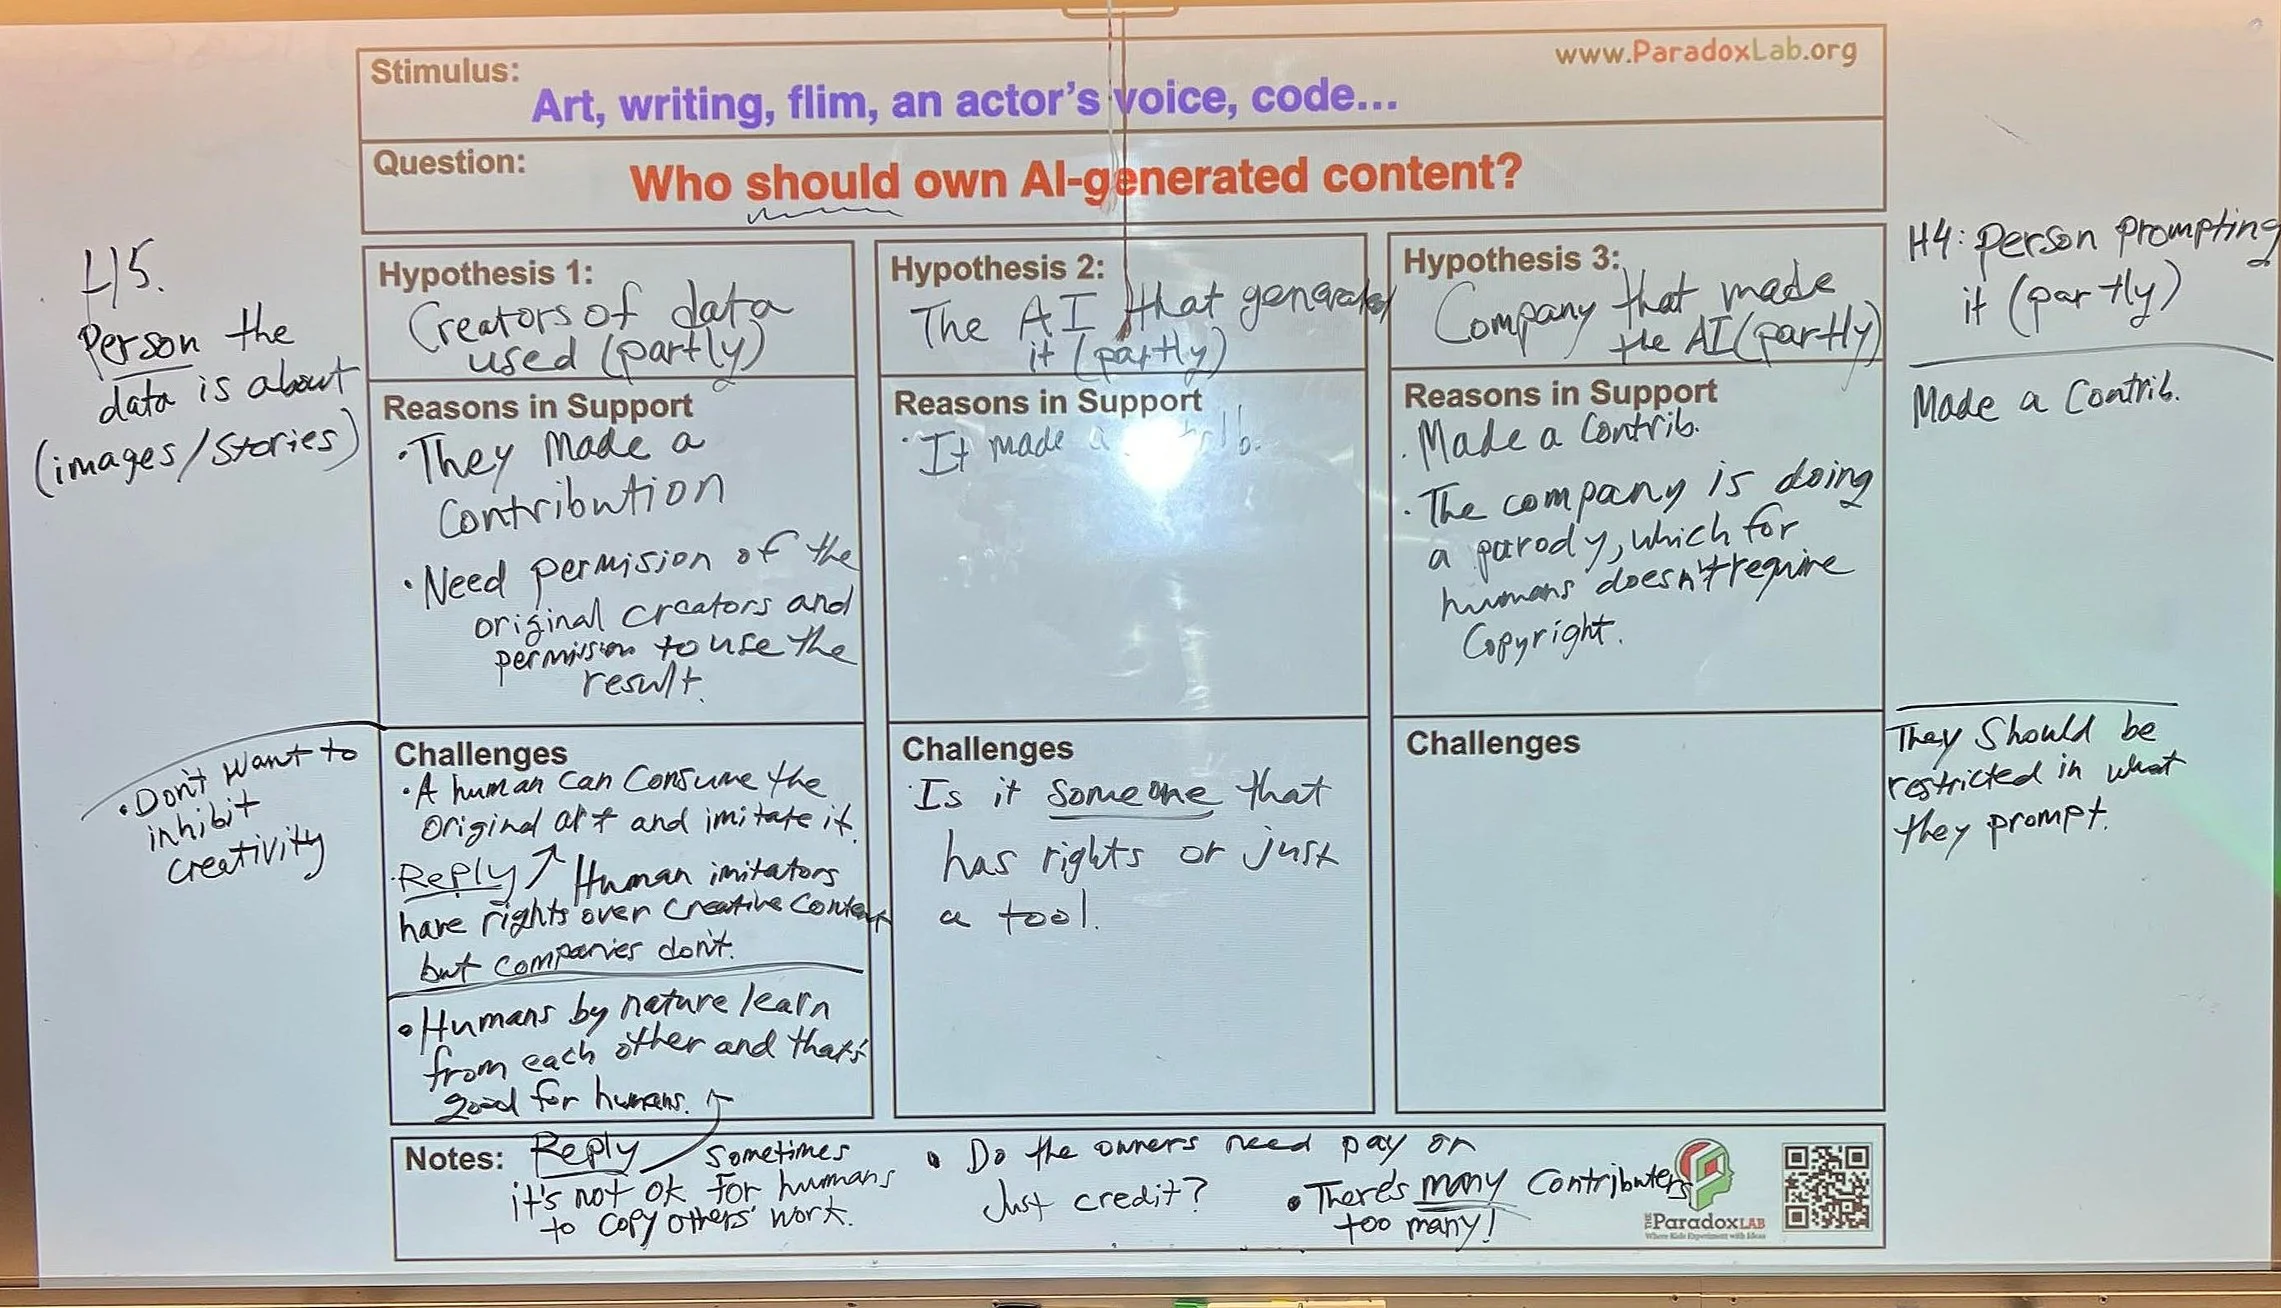 www.ParadoxLab.org
Stimulus:
Art, writing, flim, an actor's voice, code...
Question:
Who should own AI-generated content?
H5.
Person the
data is about
(images/stories)
• Don't want to
inhibit
creativity
Hypothesis 1:
Creators of data
used (partly)
Reasons in Support
• They made a
contribution
• Need permision of the
original creators and
permission to use the
result.
Challenges
• A human can consume the
original art and imitate it.
• Reply ↗ Human imitators
have rights over creative content
but companies don't.
• Humans by nature learn
from each other and that's
good for humans.
Hypothesis 2:
The AI that generated
it (partly)
Reasons in Support
• It made a contrib.
Challenges
• Is it someone that
has rights or just
a tool.
Hypothesis 3:
Company that made
the AI (partly)
Reasons in Support
• Made a contrib.
• The company is doing
a parody, which for
humans doesn't require
copyright.
Challenges
H4: Person prompting
it (partly)
Made a contrib.
They should be
restricted in what
they prompt.
Notes:
Reply
sometimes
it's not ok for humans
to copy others' work.
• Do the owners need pay or
just credit?
• There's many contributers
too many!
THE ParadoxLAB
Where Kids Experiment with Ideas